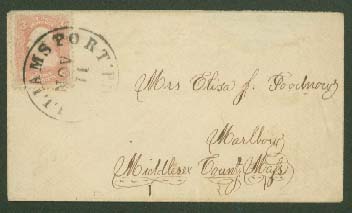 LIAMSPORT
NOV
11
Mrs Eliza J. Goodnow
Marlboro
Middlesex County Mass